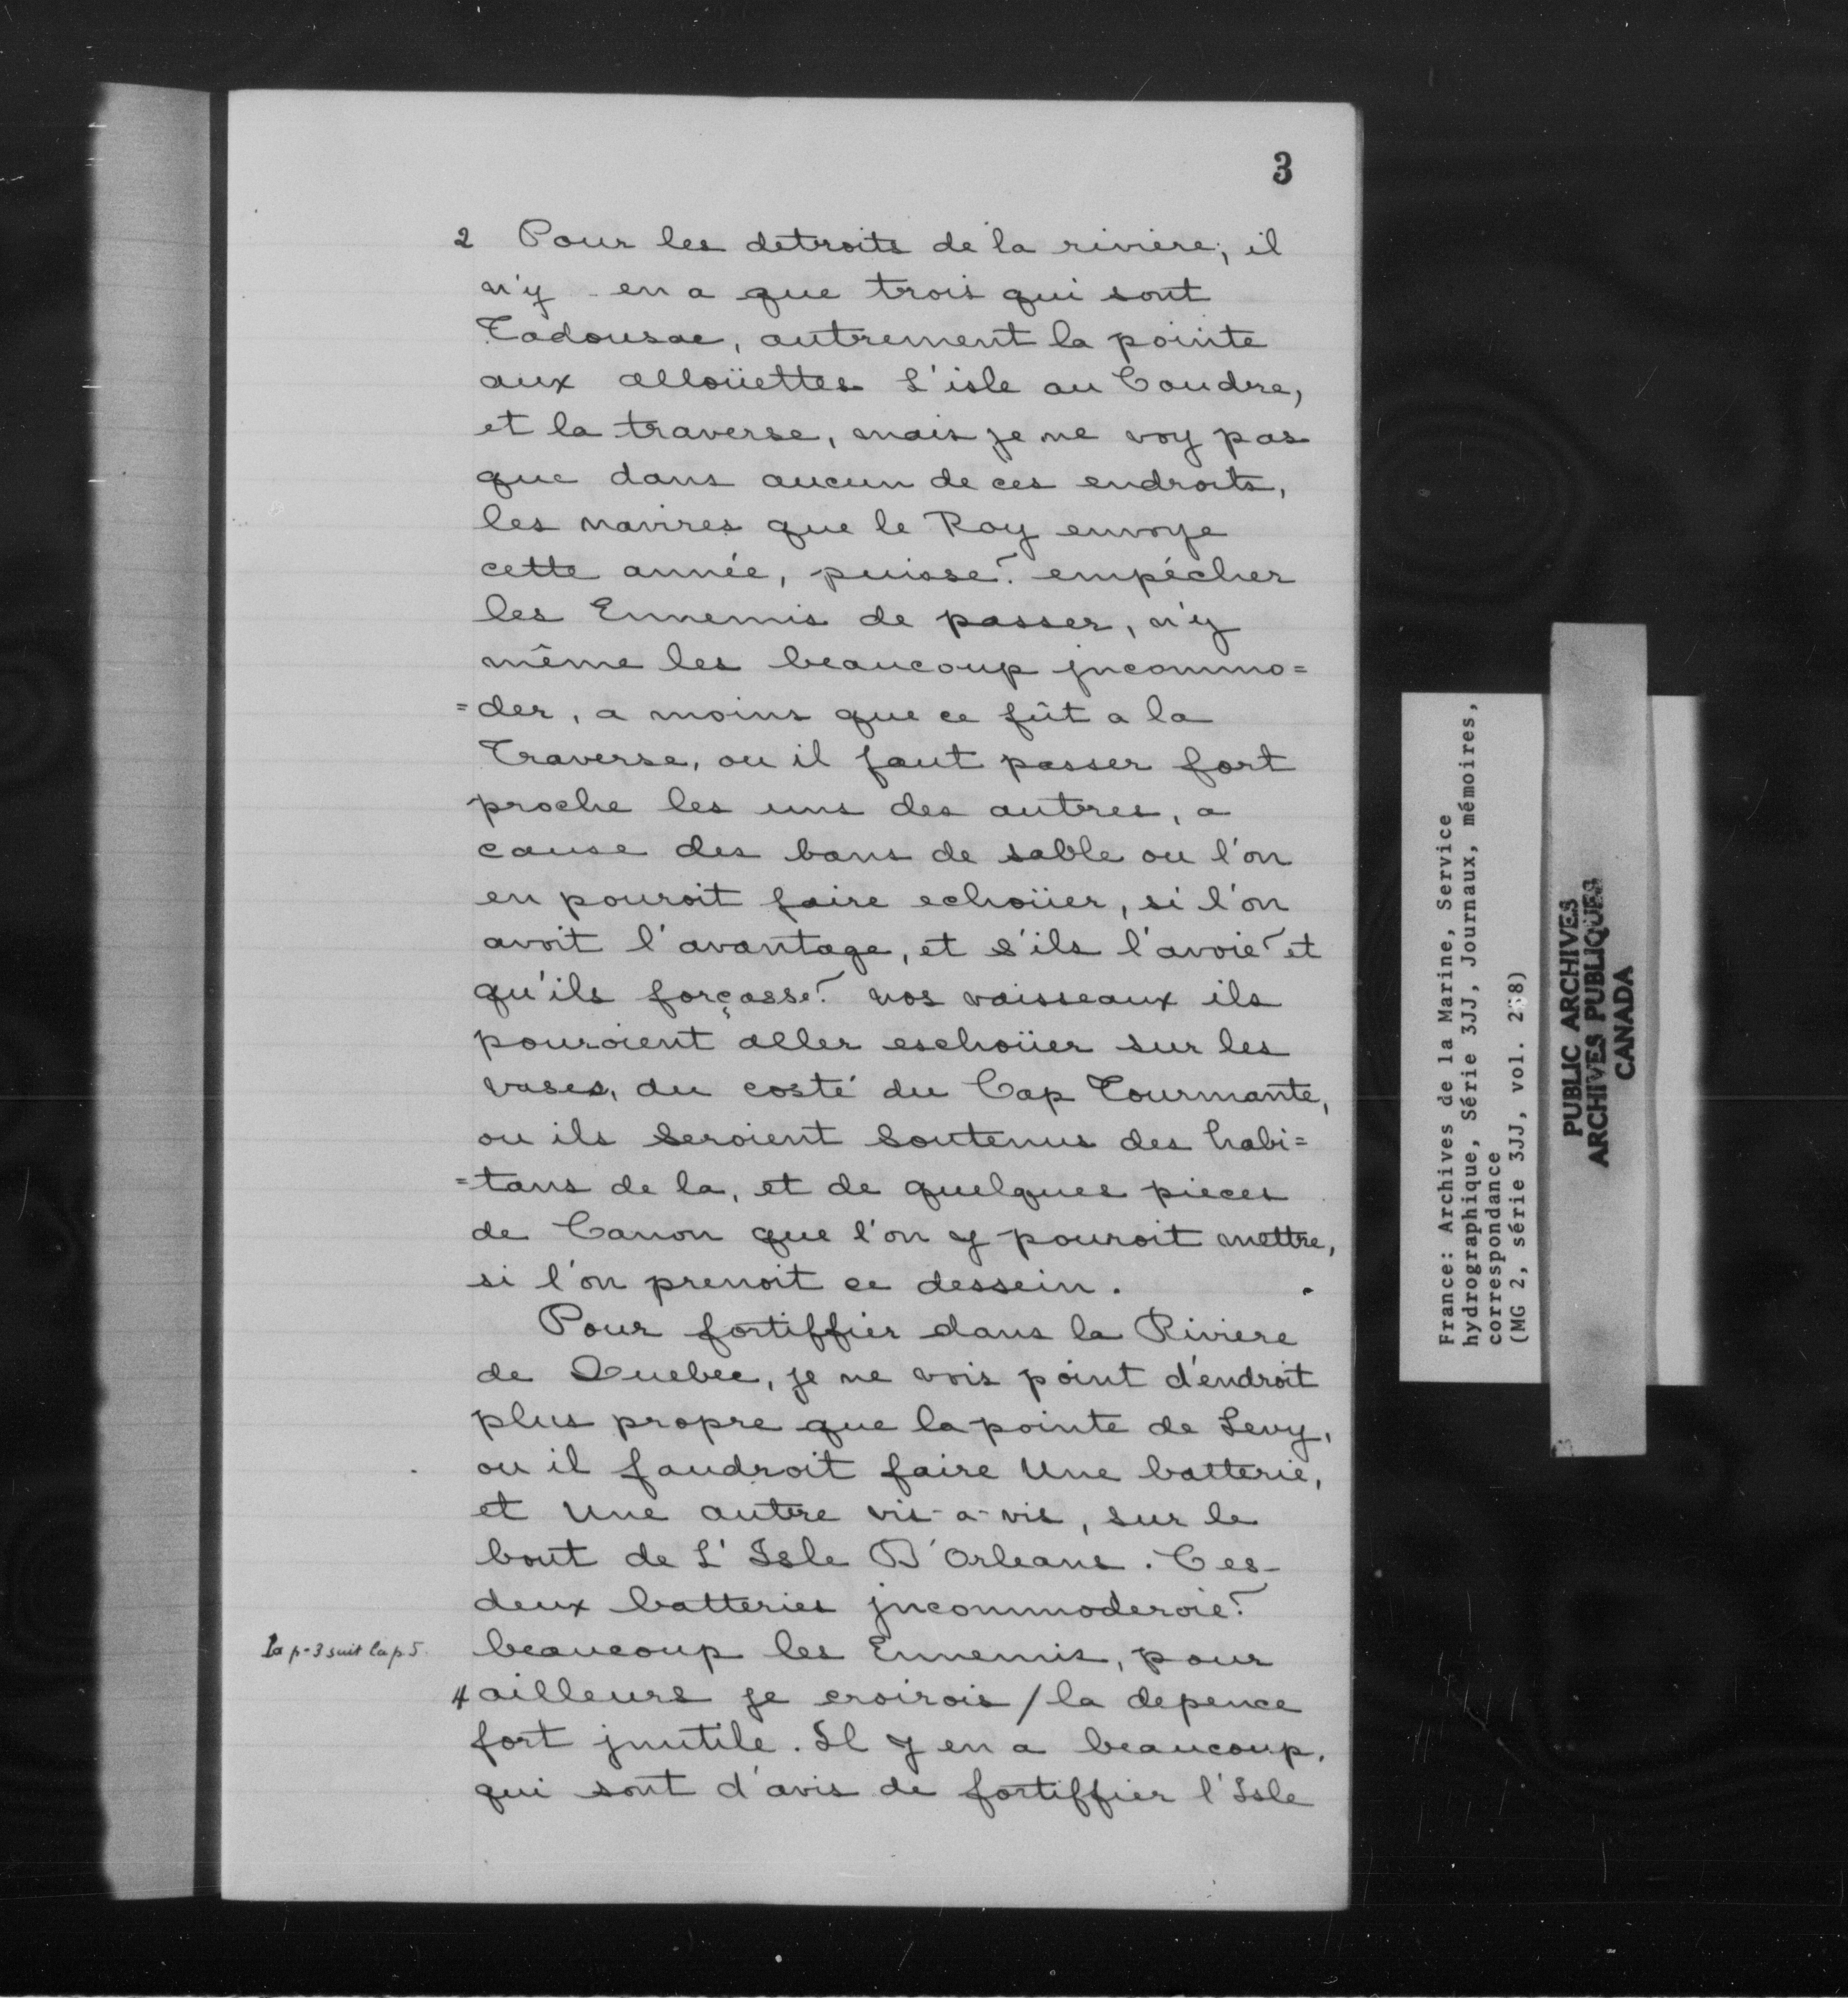 3
2 Pour les detroits de la riviere; il
n'y en a que trois qui sont
Tadousac, autrement la pointe
aux alloüettes L'isle au Coudre,
et la traverse, mais je ne voy pas
que dans aucun de ces endroits,
les navires que le Roy envoye
cette année, puisse˜. empécher
les Ennemis de passer, n'y
même les beaucoup jncommo=
=der, a moins que ce fût a la
Traverse, ou il faut passer fort
proche les uns des autres, a
cause des bans de sable ou l'on
en pouroit faire echoüer, si l'on
avoit l'avantage, et s'ils l'avoie˜ et
qu'ils forçasse˜. nos vaisseaux ils
pouroient aller eschoüer sur les
vases, du costé du Cap Tourmante,
ou ils seroient soutenus des habi=
=tans de la, et de quelques pieces
de Canon que l'on y pouroit mettre,
si l'on prenoit ce dessein.
Pour fortiffier dans la Riviere
de Quebec, je ne vois point d'endroit
plus propre que la pointe de Levy,
ou il faudroit faire Une batterie,
et Une autre vis-a-vis, sur le
bout de L'Isle D'Orleans. Ces
deux batteries jncommoderoie˜.
La p-3 suit la p 5.
beaucoup les Ennemis, pour
4 ailleurs je croirois / la depence
fort jnutile. Il y en a beaucoup,
qui sont d'avis de fortiffier l'Isle
France: Archives de la Marine, Service
hydrographique, Série 3JJ, Journaux, mémoires,
correspondance
(MG 2, série 3JJ, vol.
PUBLIC ARCHIVES
ARCHIVES PUBLIQUES
CANADA